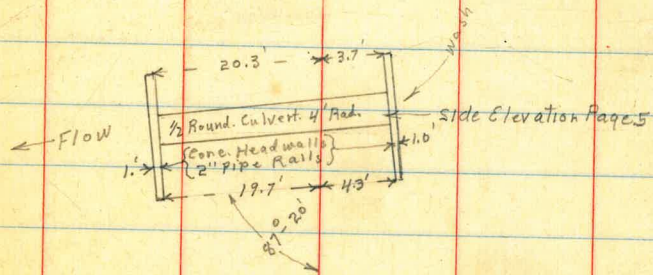 Wash
20.3' 3.7'
½ Round. Culvert. 4' Rad.
Side Elevation Page.5
Flow
{Conc. Headwalls}
{2" Pipe Rails}
1.' 1.0'
19.7' 4.3'
87°-20'